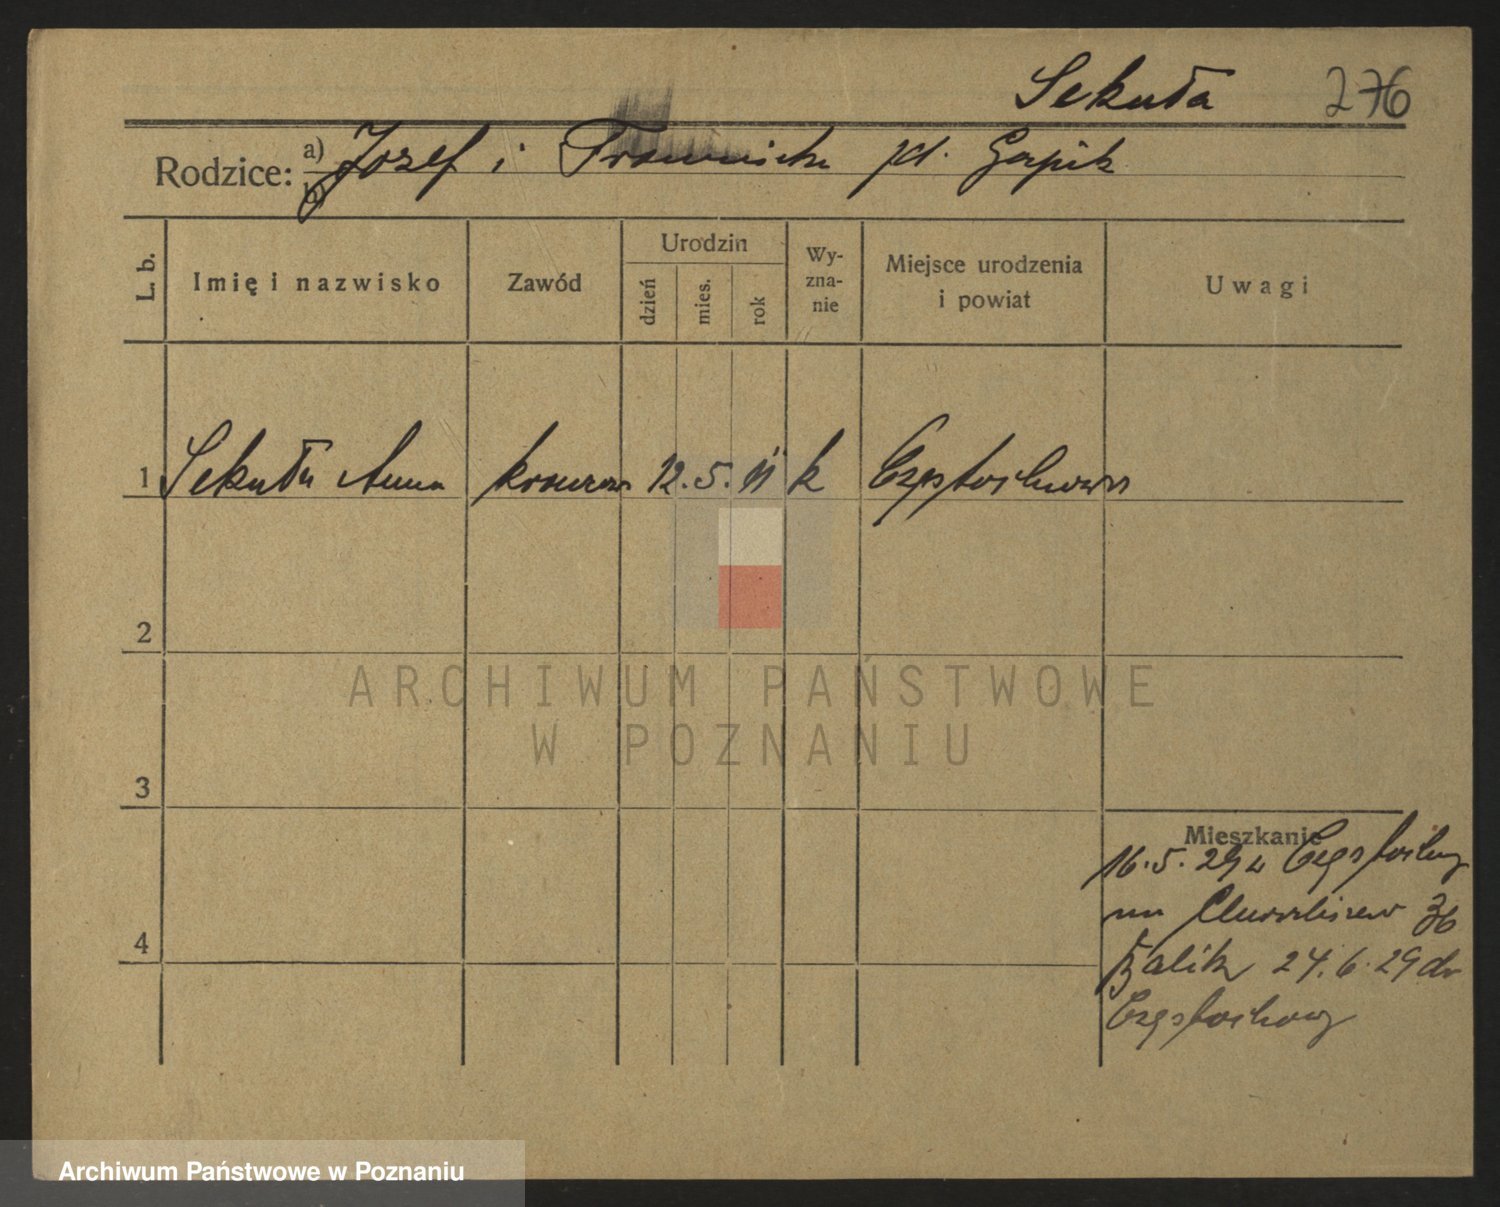 Sekuła 276
Rodzice: a) Józef i Franciszka
b)
L. b. Imię i nazwisko Zawód Urodzin dzień mies. rok Wy-zna-nie Miejsce urodzenia i powiat Uwagi
1 Sekuła Anna krawcowa 12. 5. 11 k Częstochowa
2
ARCHIWUM PAŃSTWOWE
W POZNANIU
3
Mieszkanie
16. 5. 29 z Częstochowy
na 36
24. 6. 29 do
4
Częstochowy
Archiwum Państwowe w Poznaniu